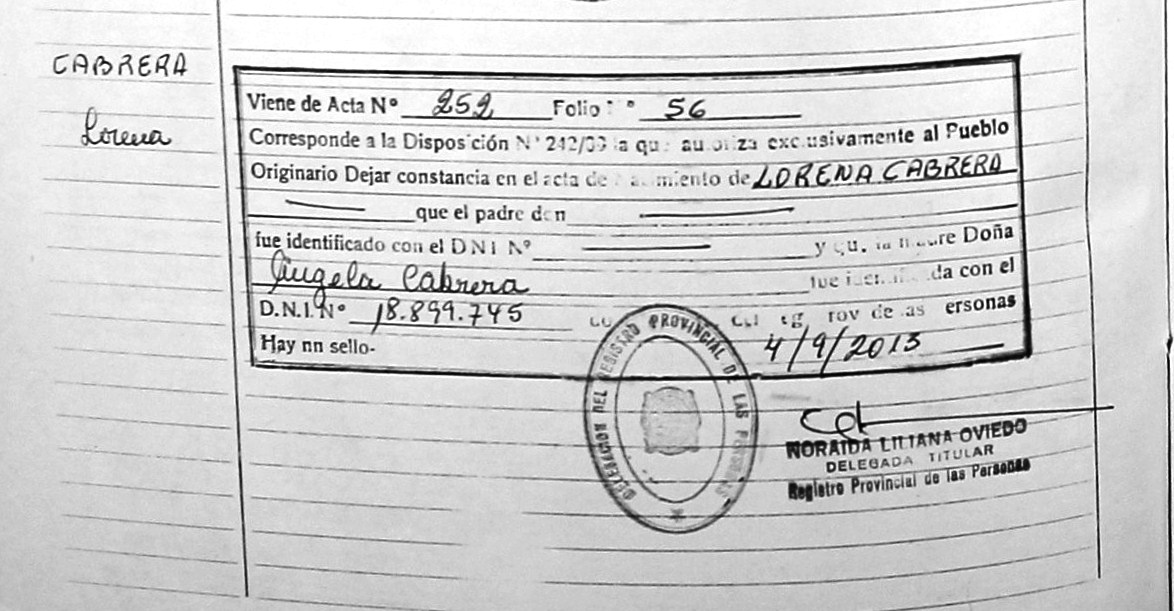 CABRERA
Lorena
Viene de Acta Nº 252 Folio º 56
Corresponde a la Disposición Nº 242/ la que autoriza exclusivamente al Pueblo
Originario Dejar constancia en el acta de miento de LORENA CABRERA
que el padre don
fue identificado con el DNI Nº y que la madre Doña
Angela Cabrera fue identificada con el
D.N.I.Nº 18.899.745 eg rov de as ersonas
Hay nn sello- 4/9/2013
DELEGACION DEL REGISTRO PROVINCIAL DE LAS PERSONAS
NORAIDA LILIANA OVIEDO
DELEGADA TITULAR
Registro Provincial de las Personas